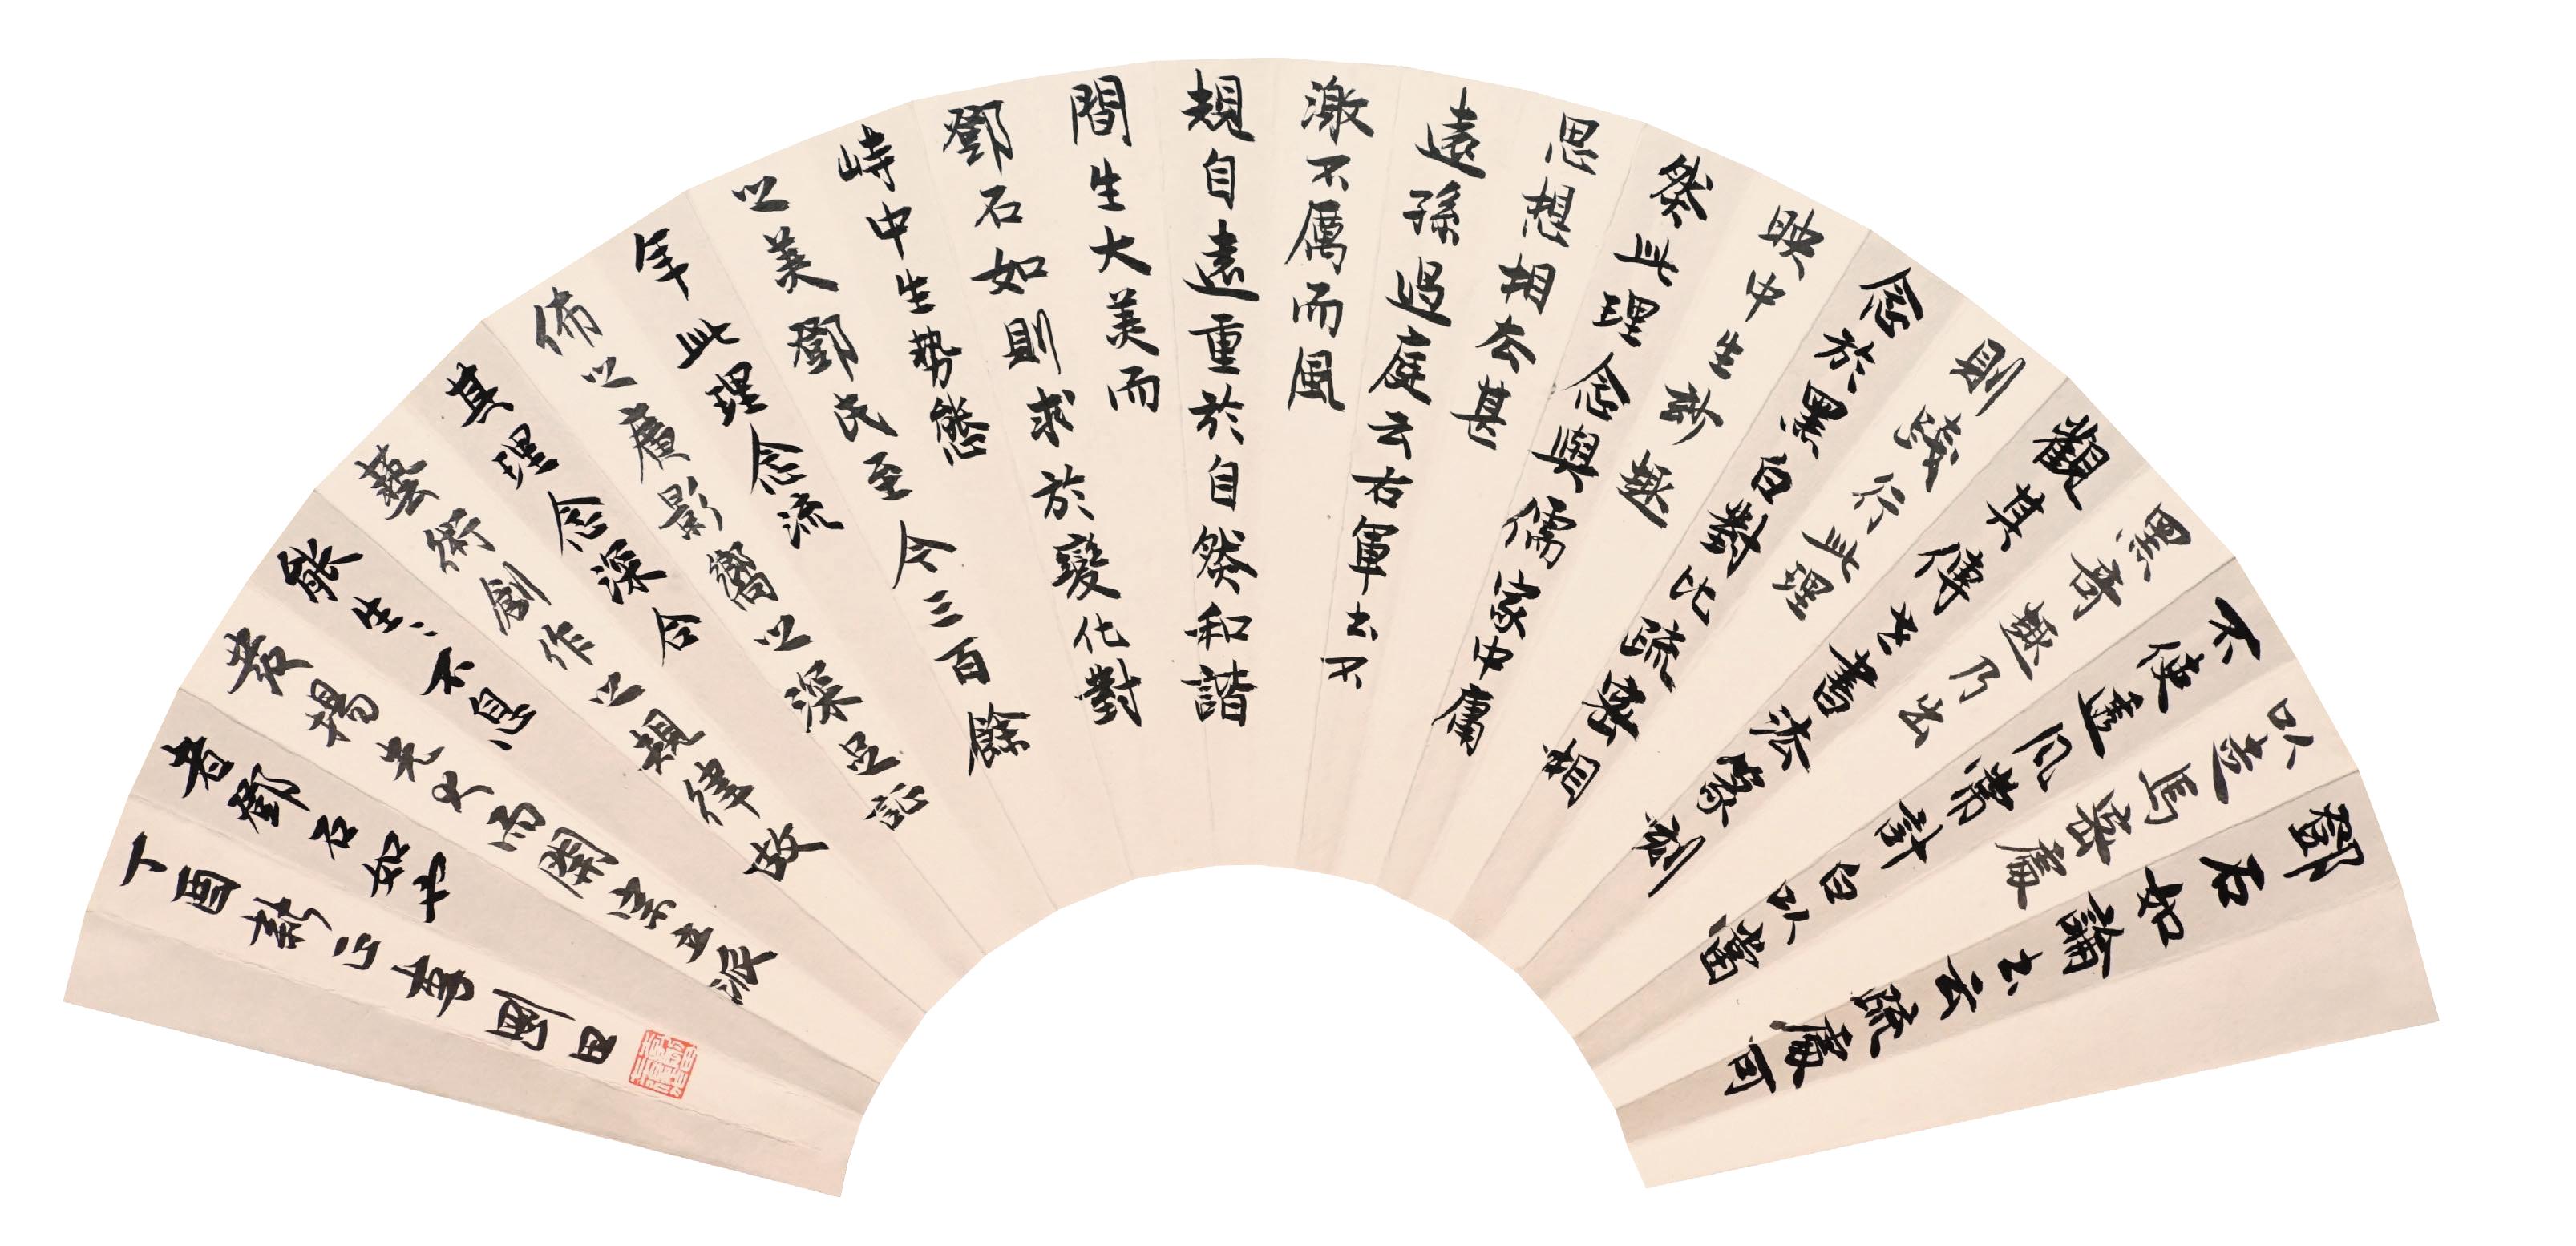 鄧石如論書云疏處可
以走馬密處
不使透風常計白以當
黑奇趣乃出
觀其傳世書法篆刻
則踐行此理
念於黑白對比疏密相
映中生妙趣
然此理念與儒家中庸
思想相去甚
遠孫過庭云右軍書不
激不厲而風
規自遠重於自然和諧
間生大美而
鄧石如則求於變化對
峙中生勢態
之美鄧氏至今三百餘
年此理念流
佈之廣影嚮之深足證
其理念深合
藝術創作之規律故
能生生不息
發揚光大而開宗立派
者鄧石如也
丁酉新正書劉